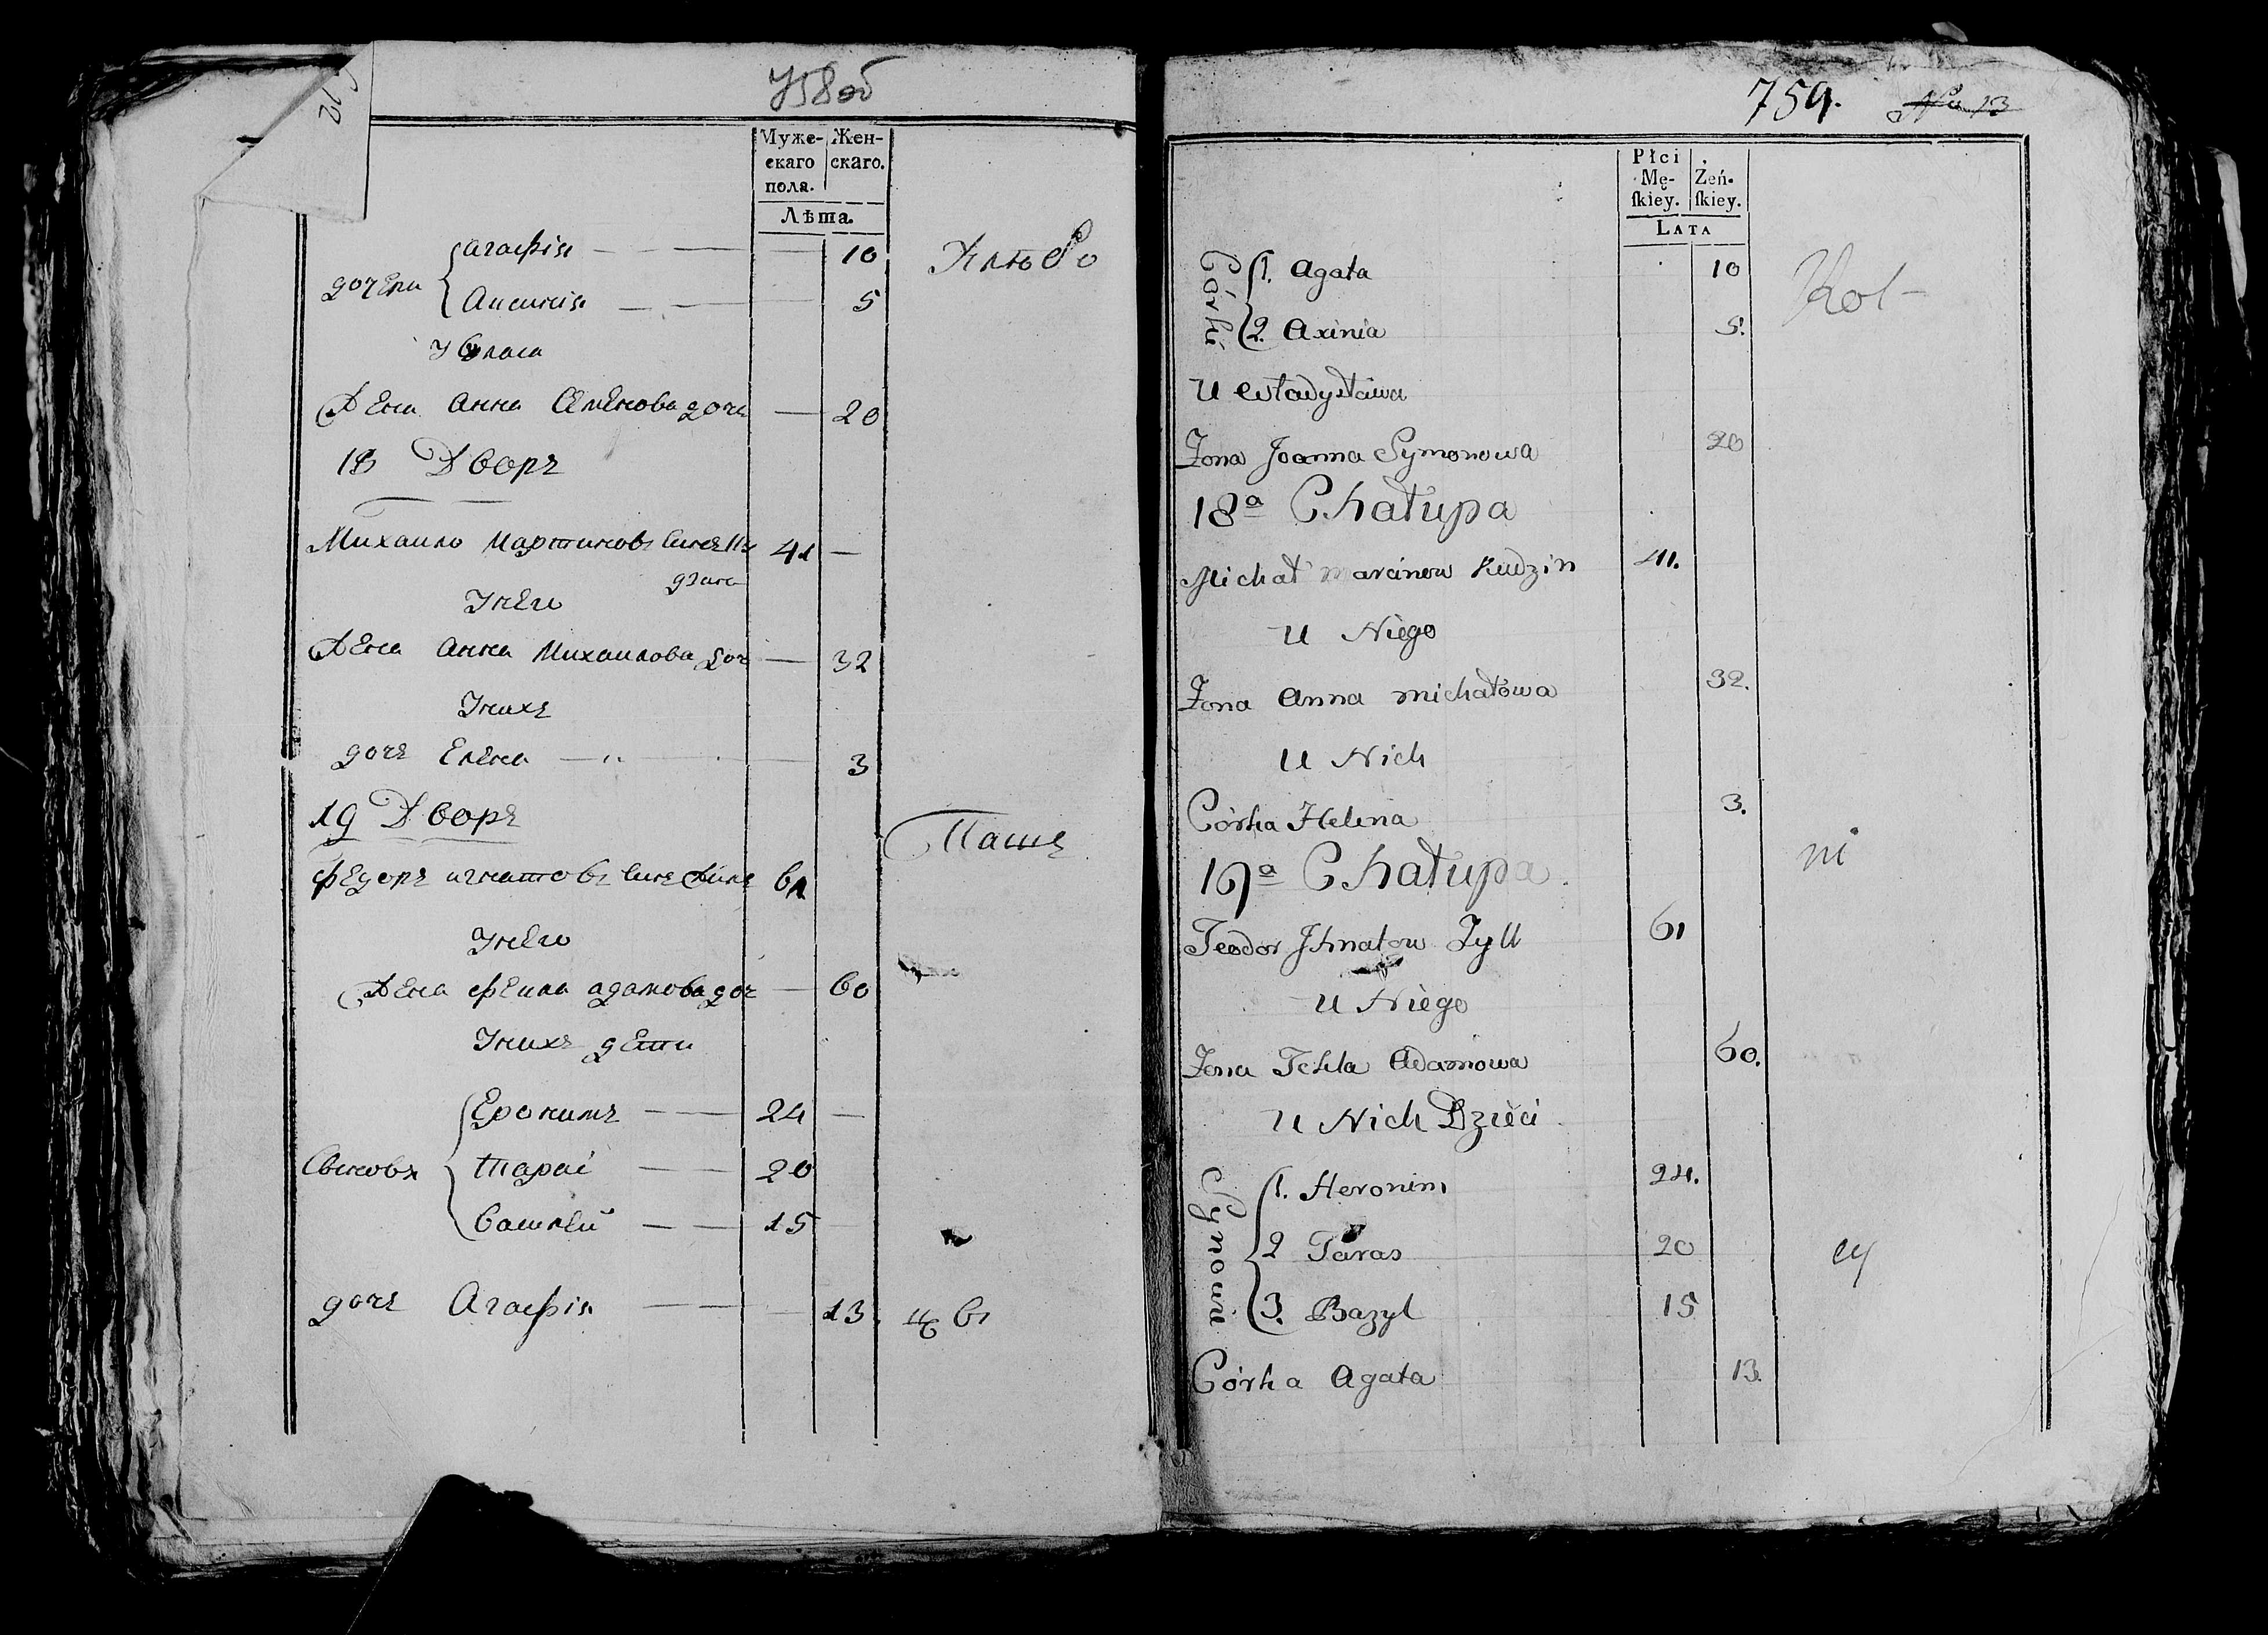 758об
Муже-
скаго
поля.
Жен-
скаго.
Лѣта.
дочери
Агафія — — — 10
Аксинія — — — 5
У Власа
Жена Анна Семенова дочь — 20
18 Дворъ
Михаило Мартиновъ синъ 41 —
У него
Жена Анна Михаилова доч — 32
У нихъ
дочъ Елена — 3
19 Дворъ
Федоръ Игнатовъ синъ 61
У него
Жена Фекла Адамова доч — 60
У нихъ дети
Синовя
Еронимъ — — 24 —
Тарас — — 20
Василей — — 15
дочъ Агафія — — — 13
759.
No 13
Płci
Mę-
ſkiey.
Żeń-
ſkiey.
LATA
Córki
1. Agata 10
2. Axinia 5.
Kol-
U Władysława
Żona Joanna Symonowa 20
18a Chałupa
Michał Marcinow Kudzin 41.
U Niego
Żona Anna Michałowa 32.
U Nich
Córka Helena 3.
19a Chałupa
ni
Teodor Ihnatow Zyll 61
U Niego
Żona Tekla Adamowa 60.
U Nich Dzieci
Synowi
1. Heronim 24.
2 Taras 20
3. Bazyl 15
Córka Agata 13.